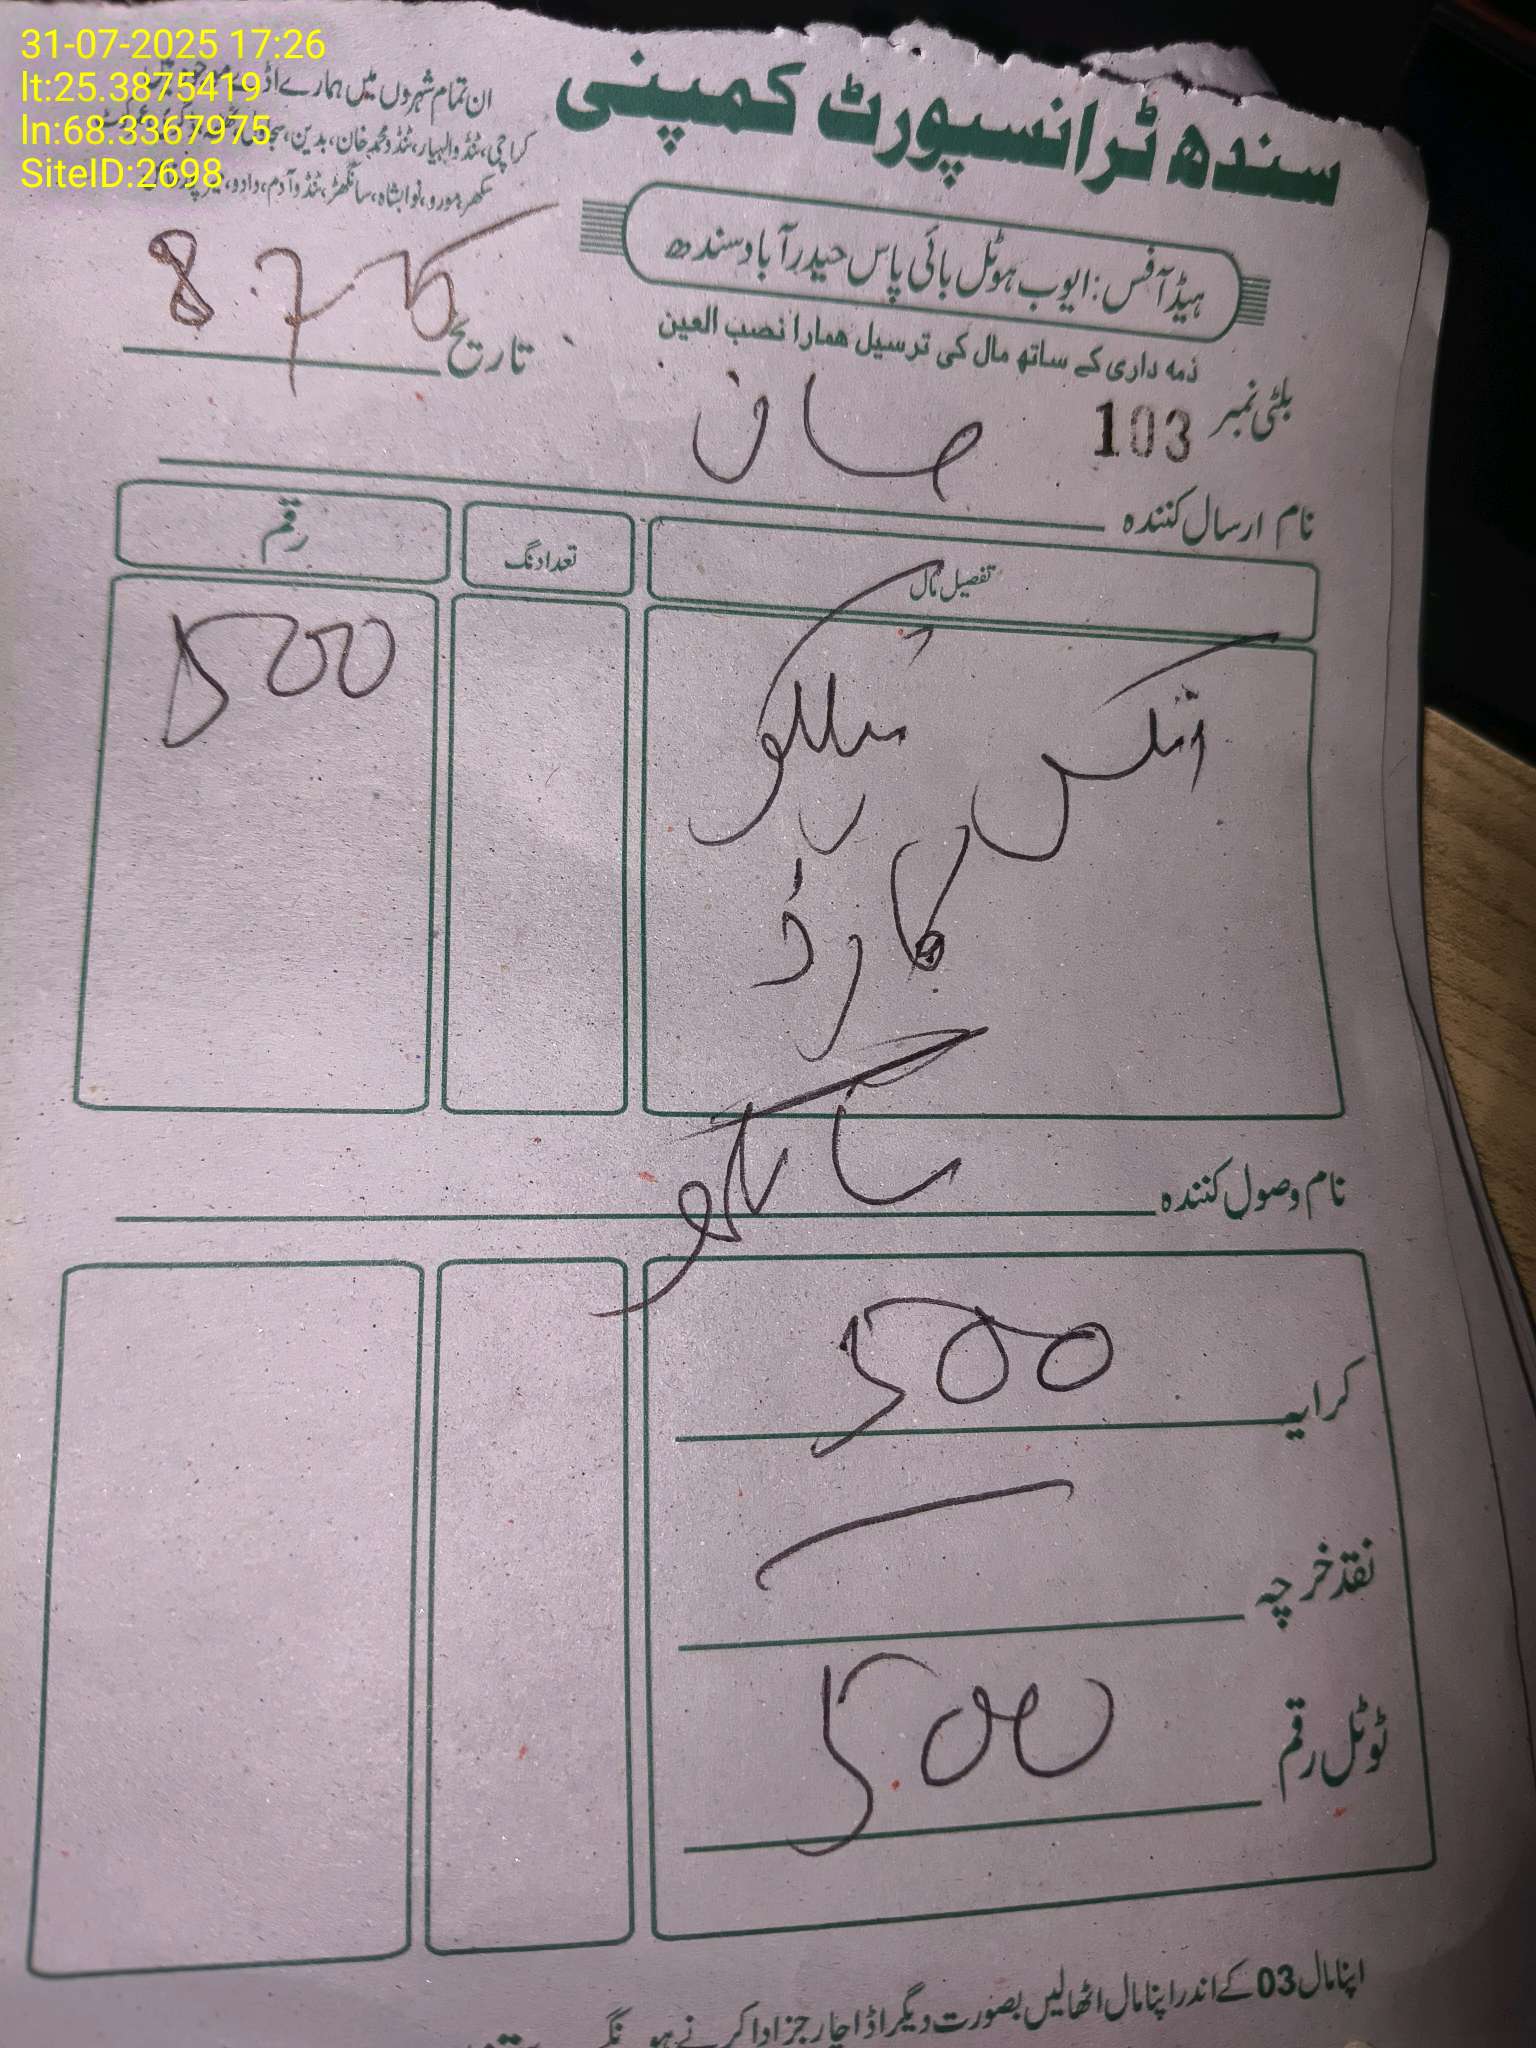 31-07-2025 17:26
lt:25.3875419
ln:68.3367975
SiteID:2698
سندھ ٹرانسپورٹ کمپنی
ان تمام شہروں میں ہمارے
کراچی، ٹنڈوالہیار، ٹنڈو محمد خان، بدین،
سکھر، مورو، نوابشاہ، سانگھڑ، ٹنڈوآدم، دادو،
ہیڈ آفس: ایوب ہوٹل بائی پاس حیدرآباد سندھ
ذمہ داری کے ساتھ مال کی ترسیل ہمارا نصب العین
تاریخ 8-7-25
بلٹی نمبر 103
نام ارسال کنندہ
تفصیل مال تعداد نگ رقم
1500
کارڈ
نام وصول کنندہ
کرایہ 1500
نقد خرچہ
ٹوٹل رقم 1500
اپنا مال 03 کے اندر اپنا مال اٹھالیں بصورت دیگر اڈا چارجز ادا کرنے ہونگے